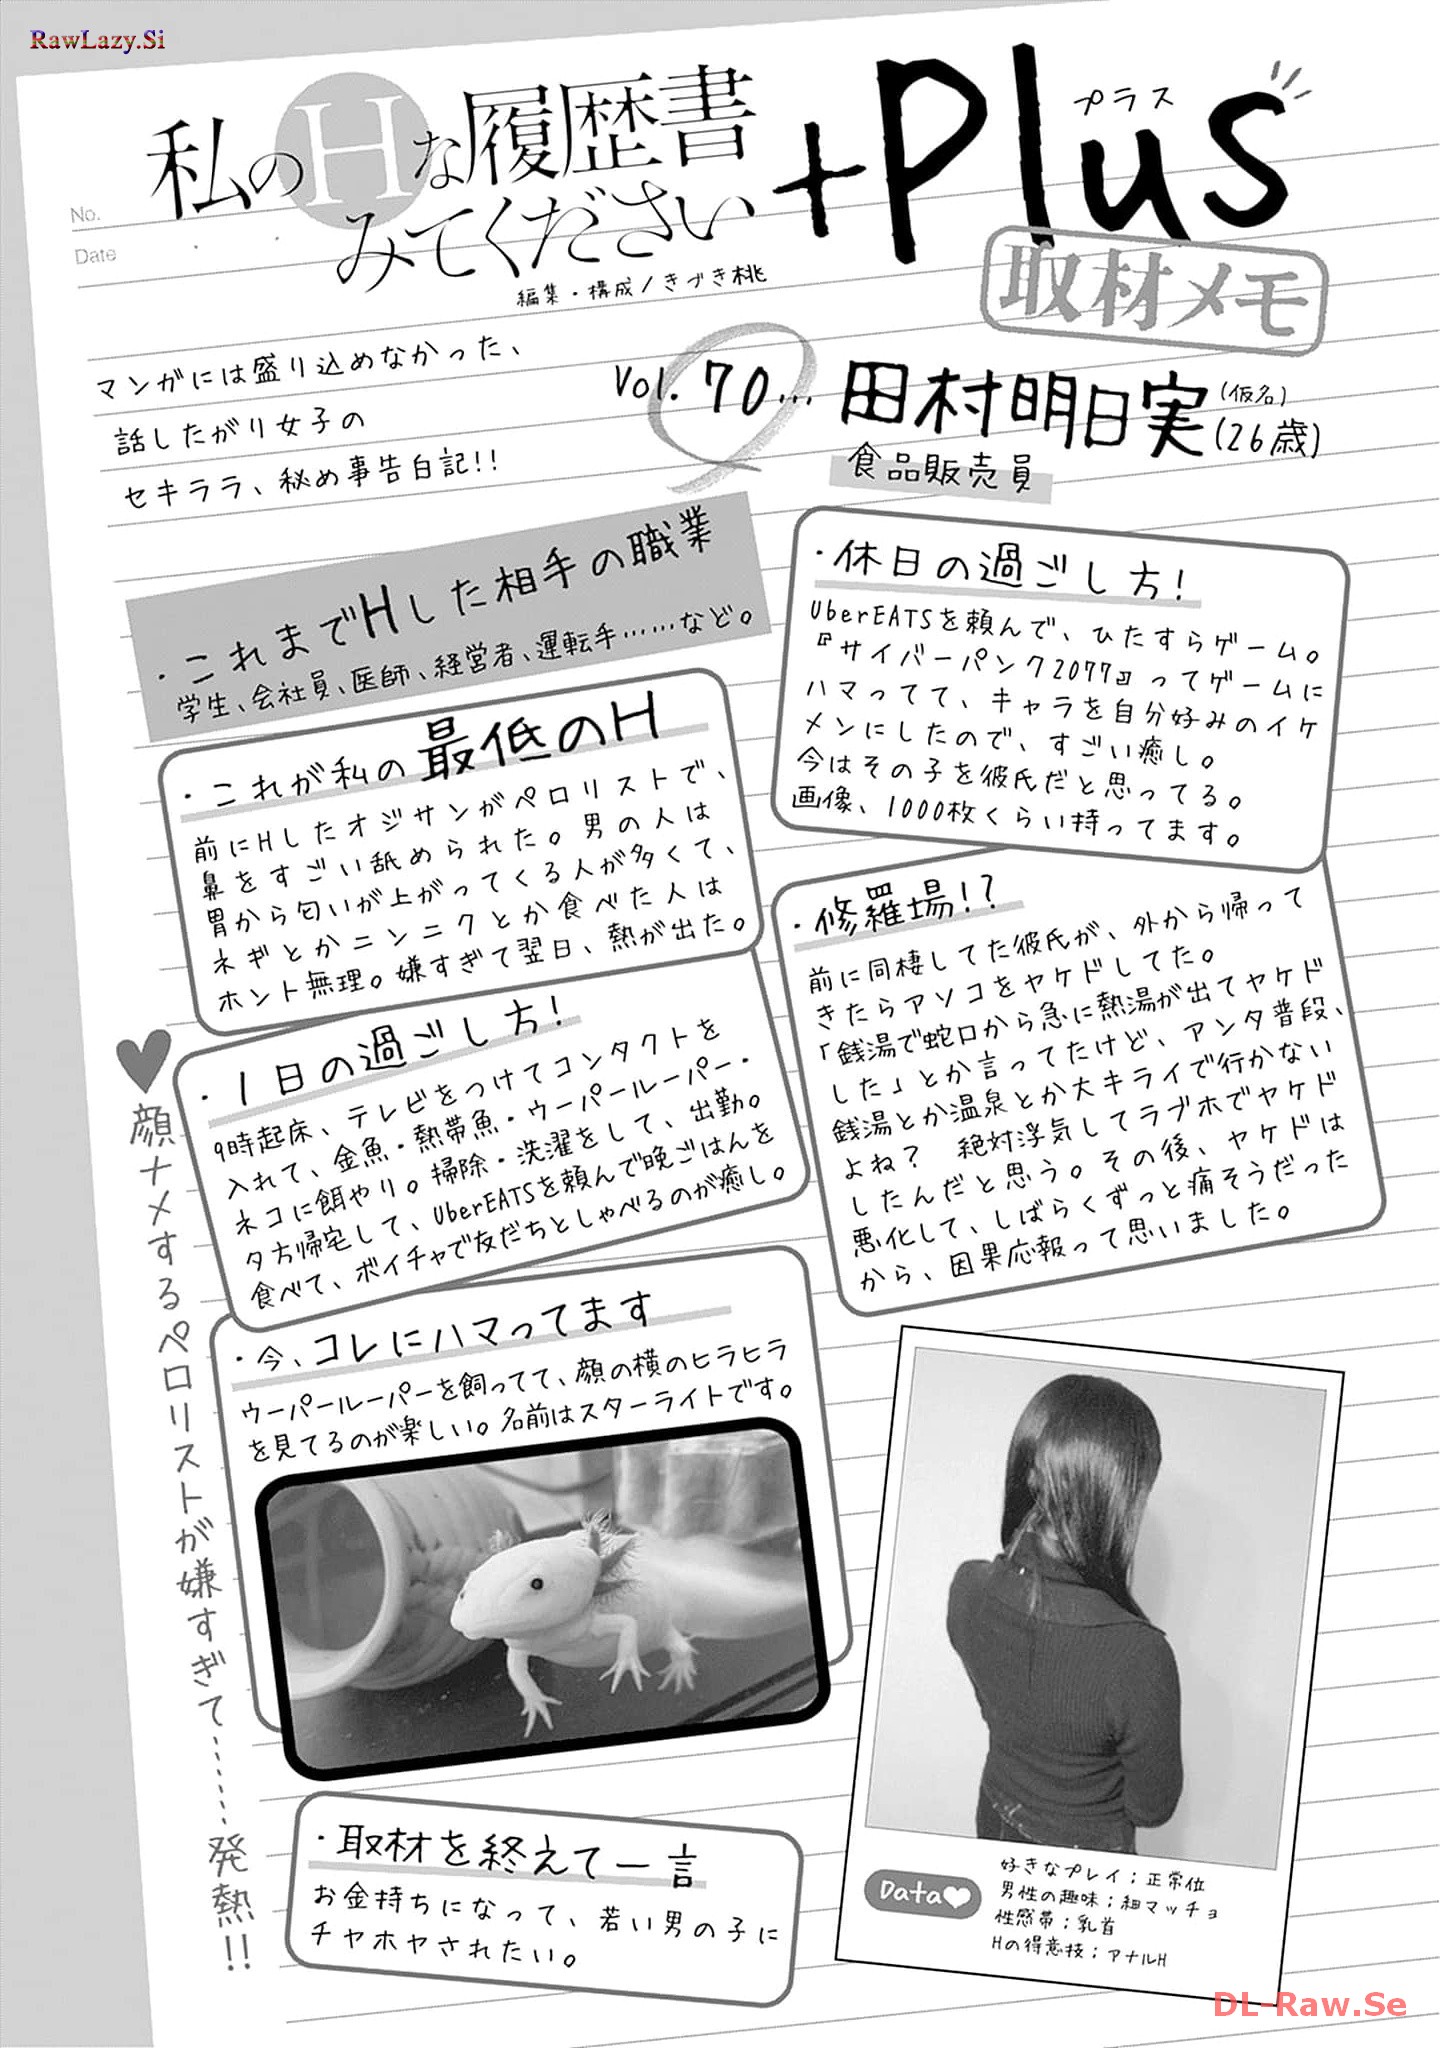 RawLazy.Si
私のHな履歴書
みてください
+Plus
プラス
取材メモ
編集・構成/きづき桃
No.
Date
マンガには盛り込めなかった、
話したがり女子の
セキララ、秘め事告白記!!
Vol.70… 田村明日実(仮名)(26歳)
食品販売員
・これまでHした相手の職業
学生、会社員、医師、経営者、運転手……など。
・休日の過ごし方!
UberEATSを頼んで、ひたすらゲーム。
『サイバーパンク2077』ってゲームに
ハマってて、キャラを自分好みのイケ
メンにしたので、すごい癒し。
今はその子を彼氏だと思ってる。
画像、1000枚くらい持ってます。
・これが私の最低のH
前にHしたオジサンがペロリストで、
鼻をすごい舐められた。男の人は
胃から匂いが上がってくる人が多くて、
ネギとかニンニクとか食べた人は
ホント無理。嫌すぎて翌日、熱が出た。
・修羅場!?
前に同棲してた彼氏が、外から帰って
きたらアソコをヤケドしてた。
「銭湯で蛇口から急に熱湯が出てヤケド
した」とか言ってたけど、アンタ普段、
銭湯とか温泉とか大キライで行かない
よね? 絶対浮気してラブホでヤケド
したんだと思う。その後、ヤケドは
悪化して、しばらくずっと痛そうだった
から、因果応報って思いました。
・1日の過ごし方!
9時起床、テレビをつけてコンタクトを
入れて、金魚・熱帯魚・ウーパールーパー・
ネコに餌やり。掃除・洗濯をして、出勤。
夕方帰宅して、UberEATSを頼んで晩ごはんを
食べて、ボイチャで友だちとしゃべるのが癒し。
・今、コレにハマってます
ウーパールーパーを飼ってて、顔の横のヒラヒラ
を見てるのが楽しい。名前はスターライトです。
♥顔ナメするペロリストが嫌すぎて……発熱!!
・取材を終えて一言
お金持ちになって、若い男の子に
チヤホヤされたい。
Data♥
好きなプレイ;正常位
男性の趣味;細マッチョ
性感帯;乳首
Hの得意技;アナルH
DL-Raw.Se